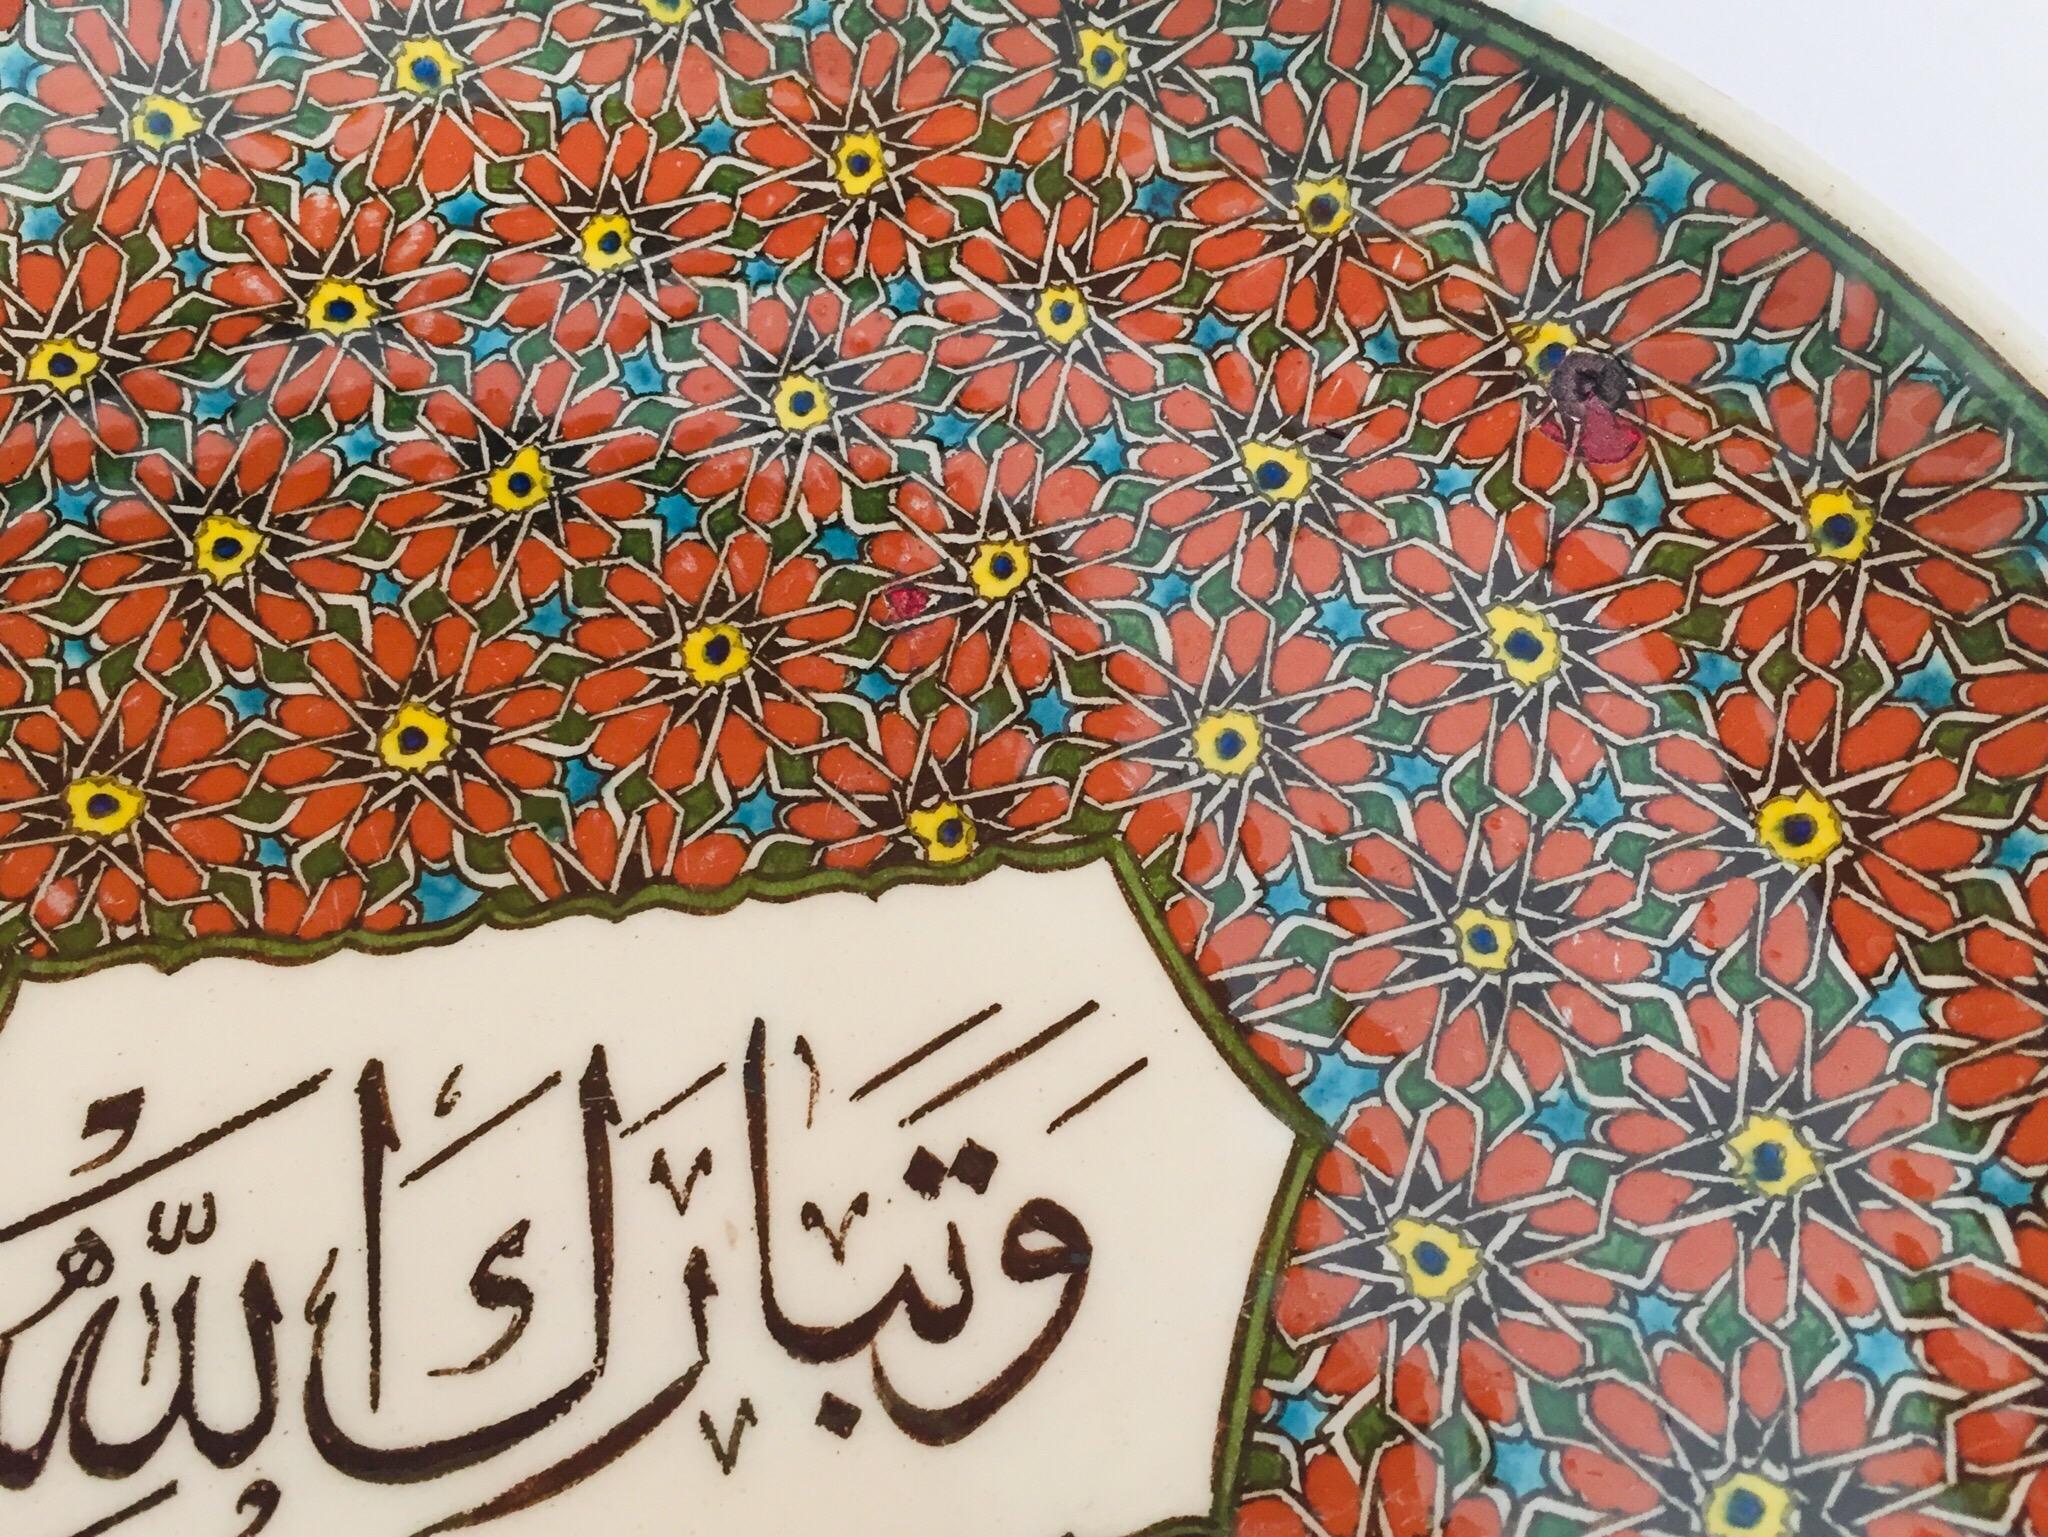 وَتَبَارَكَ اللهُ